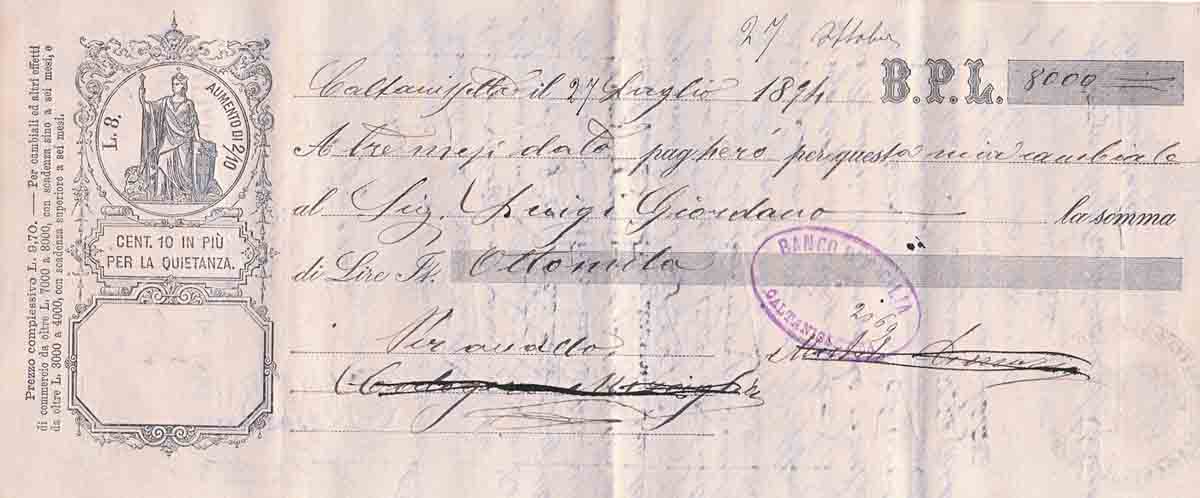 27 Ottobre
Caltanissetta il 27 Luglio 1894 B.P.L. 8000
A tre mesi data pagherò per questa mia cambiale
al Sig. Luigi Giordano la somma
di Lire It. Ottomila
BANCO SICILIA
CALTANISS
2069
Per avallo
L. 8,
AUMENTO DI 2/10
CENT. 10 IN PIÙ
PER LA QUIETANZA.
Prezzo complessivo L. 9,70. — Per cambiali ed altri effetti
di commercio da oltre L. 7000 a 8000, con scadenza sino a sei mesi, e
da oltre L. 3000 a 4000, con scadenza superiore a sei mesi.